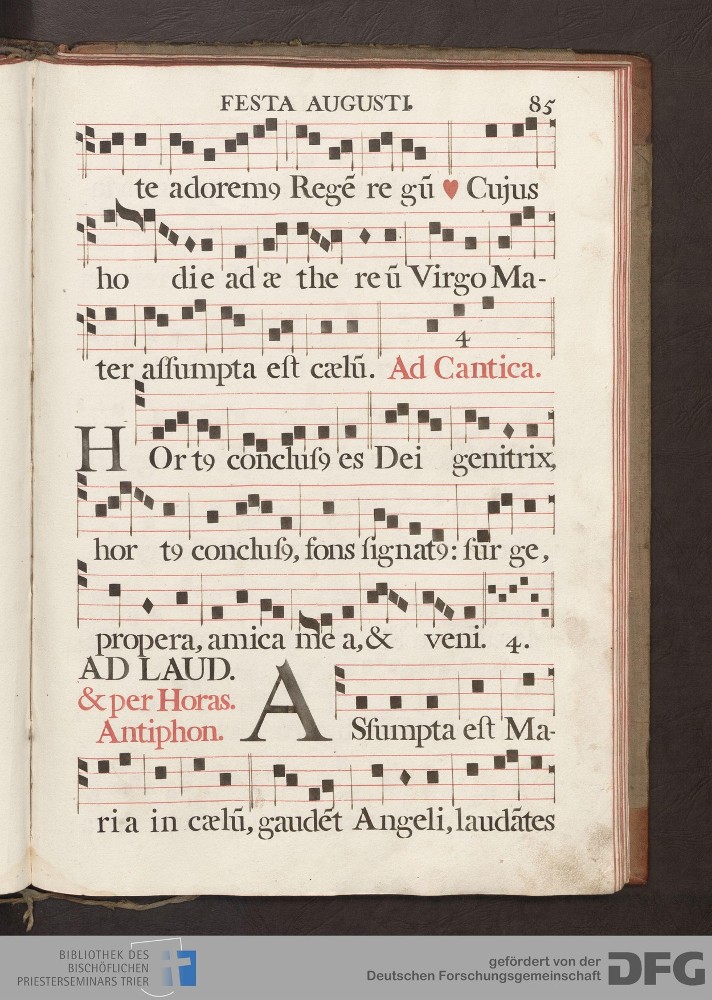 FESTA AUGUSTI. 85
te adorem9 Regē re gū ♥ Cujus
ho die ad æ the reū Virgo Ma-
4
ter aſſumpta eſt cælū. Ad Cantica.
HOr t9 concluſ9 es Dei genitrix,
hor t9 concluſ9, fons ſignat9: ſur ge,
propera, amica me a, & veni. 4.
AD LAUD.
& per Horas.
Antiphon.
ASſumpta eſt Ma-
ria in cælū, gaudēt Angeli, laudātes
BIBLIOTHEK DES
BISCHÖFLICHEN
PRIESTERSEMINARS TRIER
gefördert von der
Deutschen Forschungsgemeinschaft
DFG